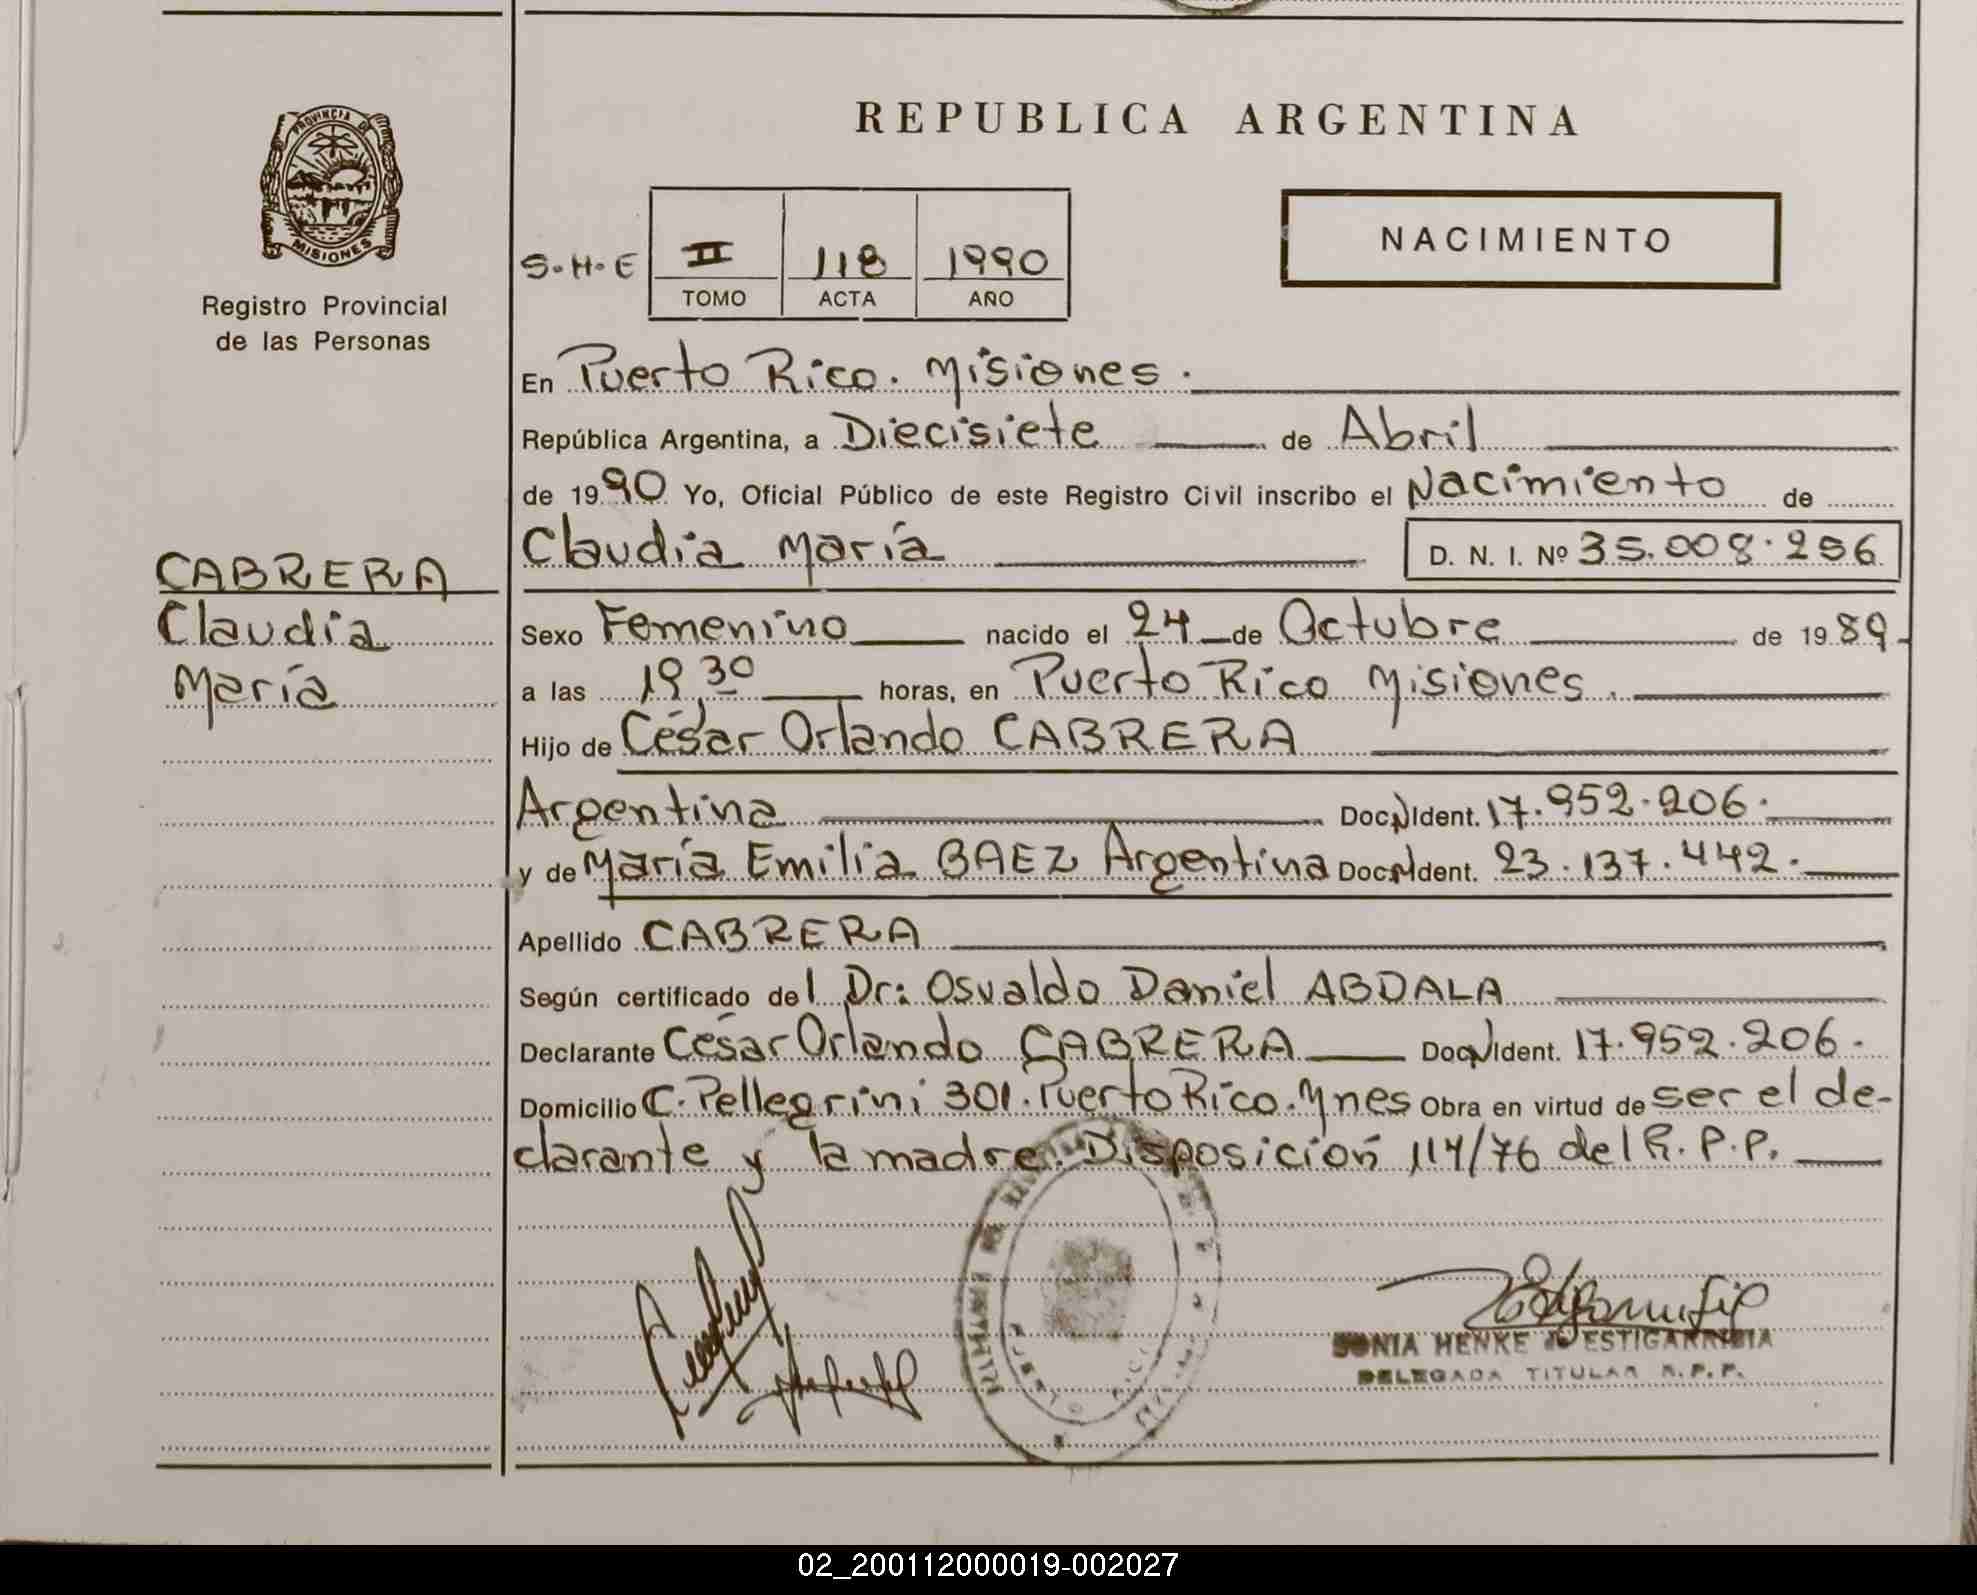 PROVINCIA DE
MISIONES
Registro Provincial
de las Personas
CABRERA
Claudia
María
REPUBLICA ARGENTINA
NACIMIENTO
S.H.E
II 118 1990
TOMO ACTA AÑO
En Puerto Rico. Misiones.
República Argentina, a Diecisiete de Abril
de 1990 Yo, Oficial Público de este Registro Civil inscribo el Nacimiento de
Claudia María D. N. I. Nº 35.008.256
Sexo Femenino nacido el 24 de Octubre de 1989
a las 19,30 horas, en Puerto Rico Misiones.
Hijo de César Orlando CABRERA
Argentina Doc.NIdent. 17.952.206.
y de María Emilia BAEZ Argentina Doc.NIdent. 23.137.442.
Apellido CABRERA
Según certificado del Dr: Osvaldo Daniel ABDALA
Declarante César Orlando CABRERA Doc.NIdent. 17.952.206.
Domicilio C. Pellegrini 301. Puerto Rico. Mnes Obra en virtud de ser el de-
clarante y la madre. Disposición 114/76 del R.P.P.
SONIA HENKE de ESTIGARRIBIA
DELEGADA TITULAR R.P.P.
02_200112000019-002027